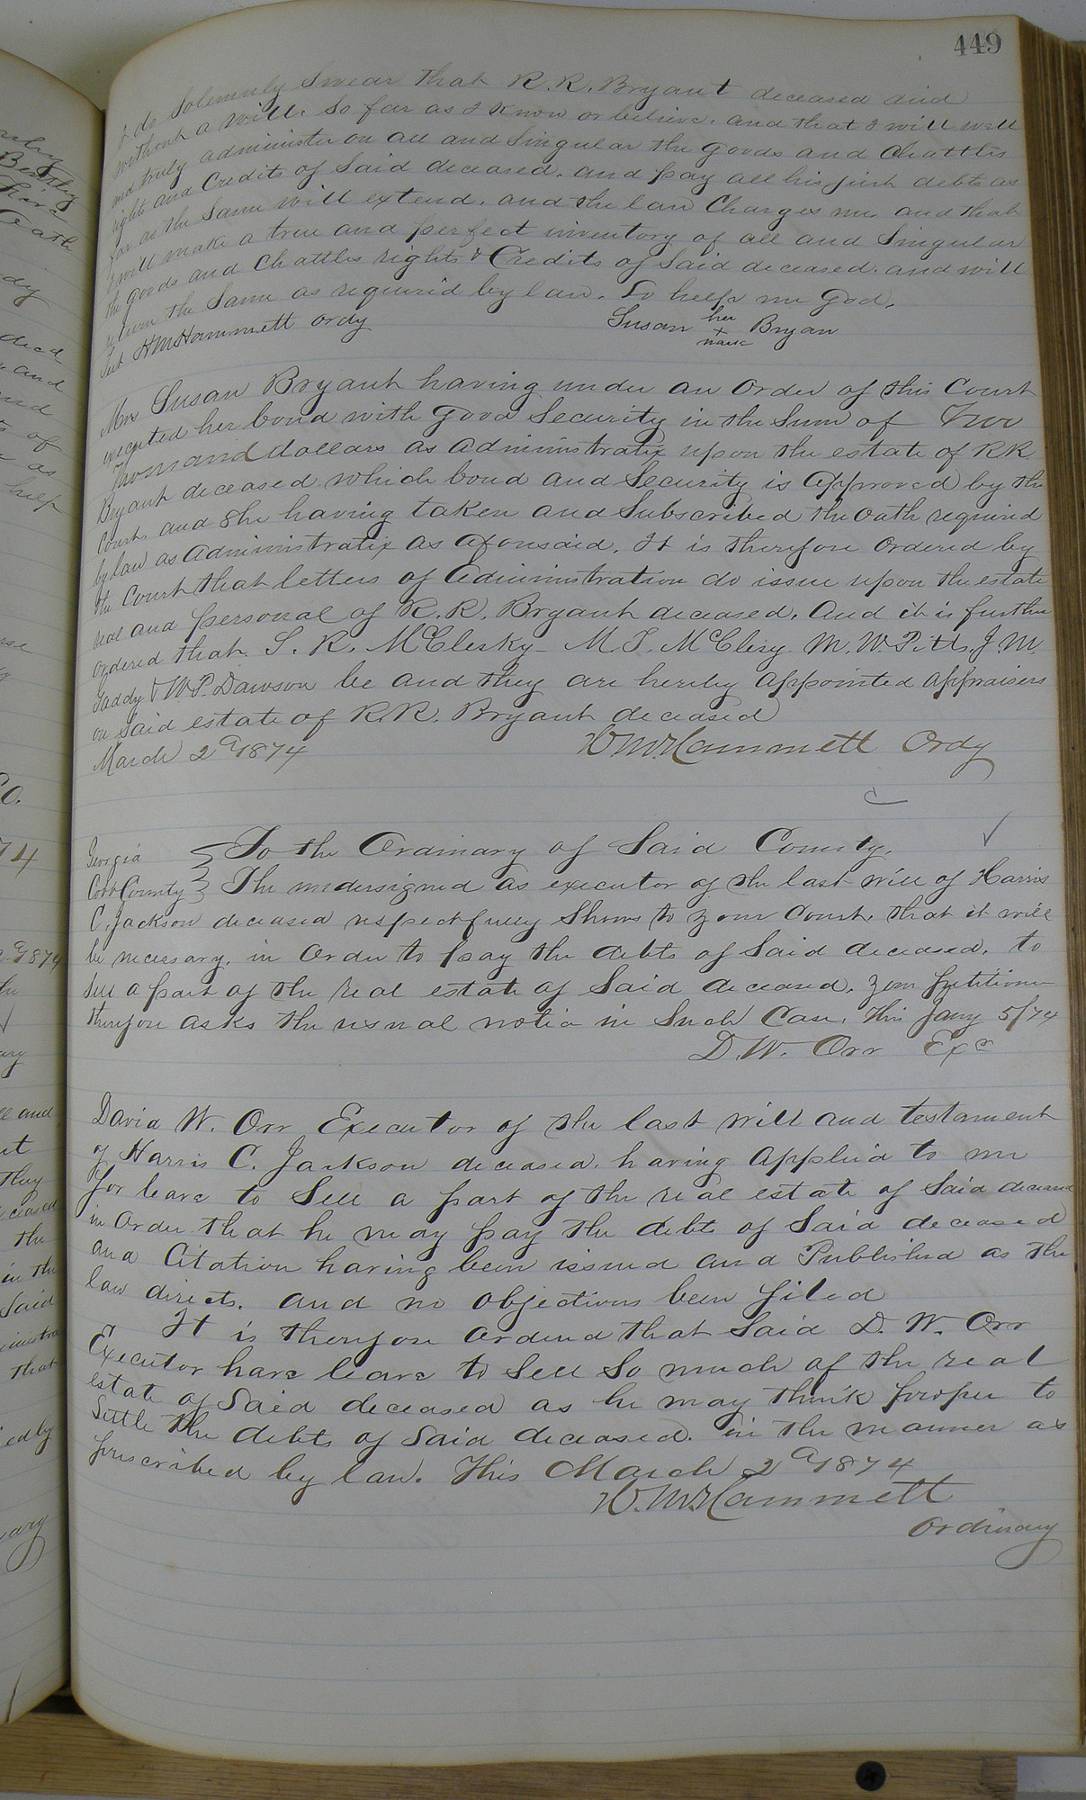 449
I do Solemnly Swear that R.R. Bryant deceased died
without a will. So far as I know or believe. and that I will well
and truly administer on all and Singular the goods and Chattles
rights and Credits of Said deceased. and pay all his just debts as
far as the Same will extend. and the law Charges me and that
I will make a true and perfect inventory of all and Singular
the goods and Chattles rights & Credits of Said deceased. and will
return the Same as required by law. So help me God.
Sub HMHammett Ordy Susan her Bryan
+
mark
Mrs Susan Bryant having under an Order of this Court
executed her bond with good Security in the Sum of Two
Thousand dollars as administratrix upon the estate of RR
Bryant deceased which bond and Security is Approved by the
Court. and She having taken and Subscribed the Oath required
by law as administratrix as aforesaid. It is therefore Ordered by
the Court that letters of Administration do issue upon the estate
real and personal of R.R. Bryant deceased. And it is further
Ordered that S. R. McClesky M. J. McClesy M. W. Pitts, J. M.
Gaddy & W.P. Dawson be and they are hereby appointed appraisers
on Said estate of R.R. Bryant deceased
March 2d 1874 HMHammett Ordy
Georgia To the Ordinary of Said County.
Cobb County The undersigned as executor of the last will of Harris
C. Jackson deceased respectfully Shows to your Court. that it will
be necessary. in Order to pay the debts of Said deceased. to
Sell a part of the real estate of Said deceased. your petitioner
therefore asks the usual notice in Such Case. This Jany 5/74
D. W. Orr Exr
David W. Orr Executor of the last will and testament
of Harris C. Jackson deceased. having applied to me
for leave to Sell a part of the real estate of Said deceased
in Order that he may pay the debts of Said deceased
and Citation having been issued and Published as the
law directs. and no objections been filed
It is therefore Ordered that Said D. W. Orr
Executor have leave to Sell So much of the real
estate of Said deceased as he may think proper to
Settle the debts of Said deceased. in the manner as
prescribed by law. This March 2d 1874
H.M.Hammett
Ordinary